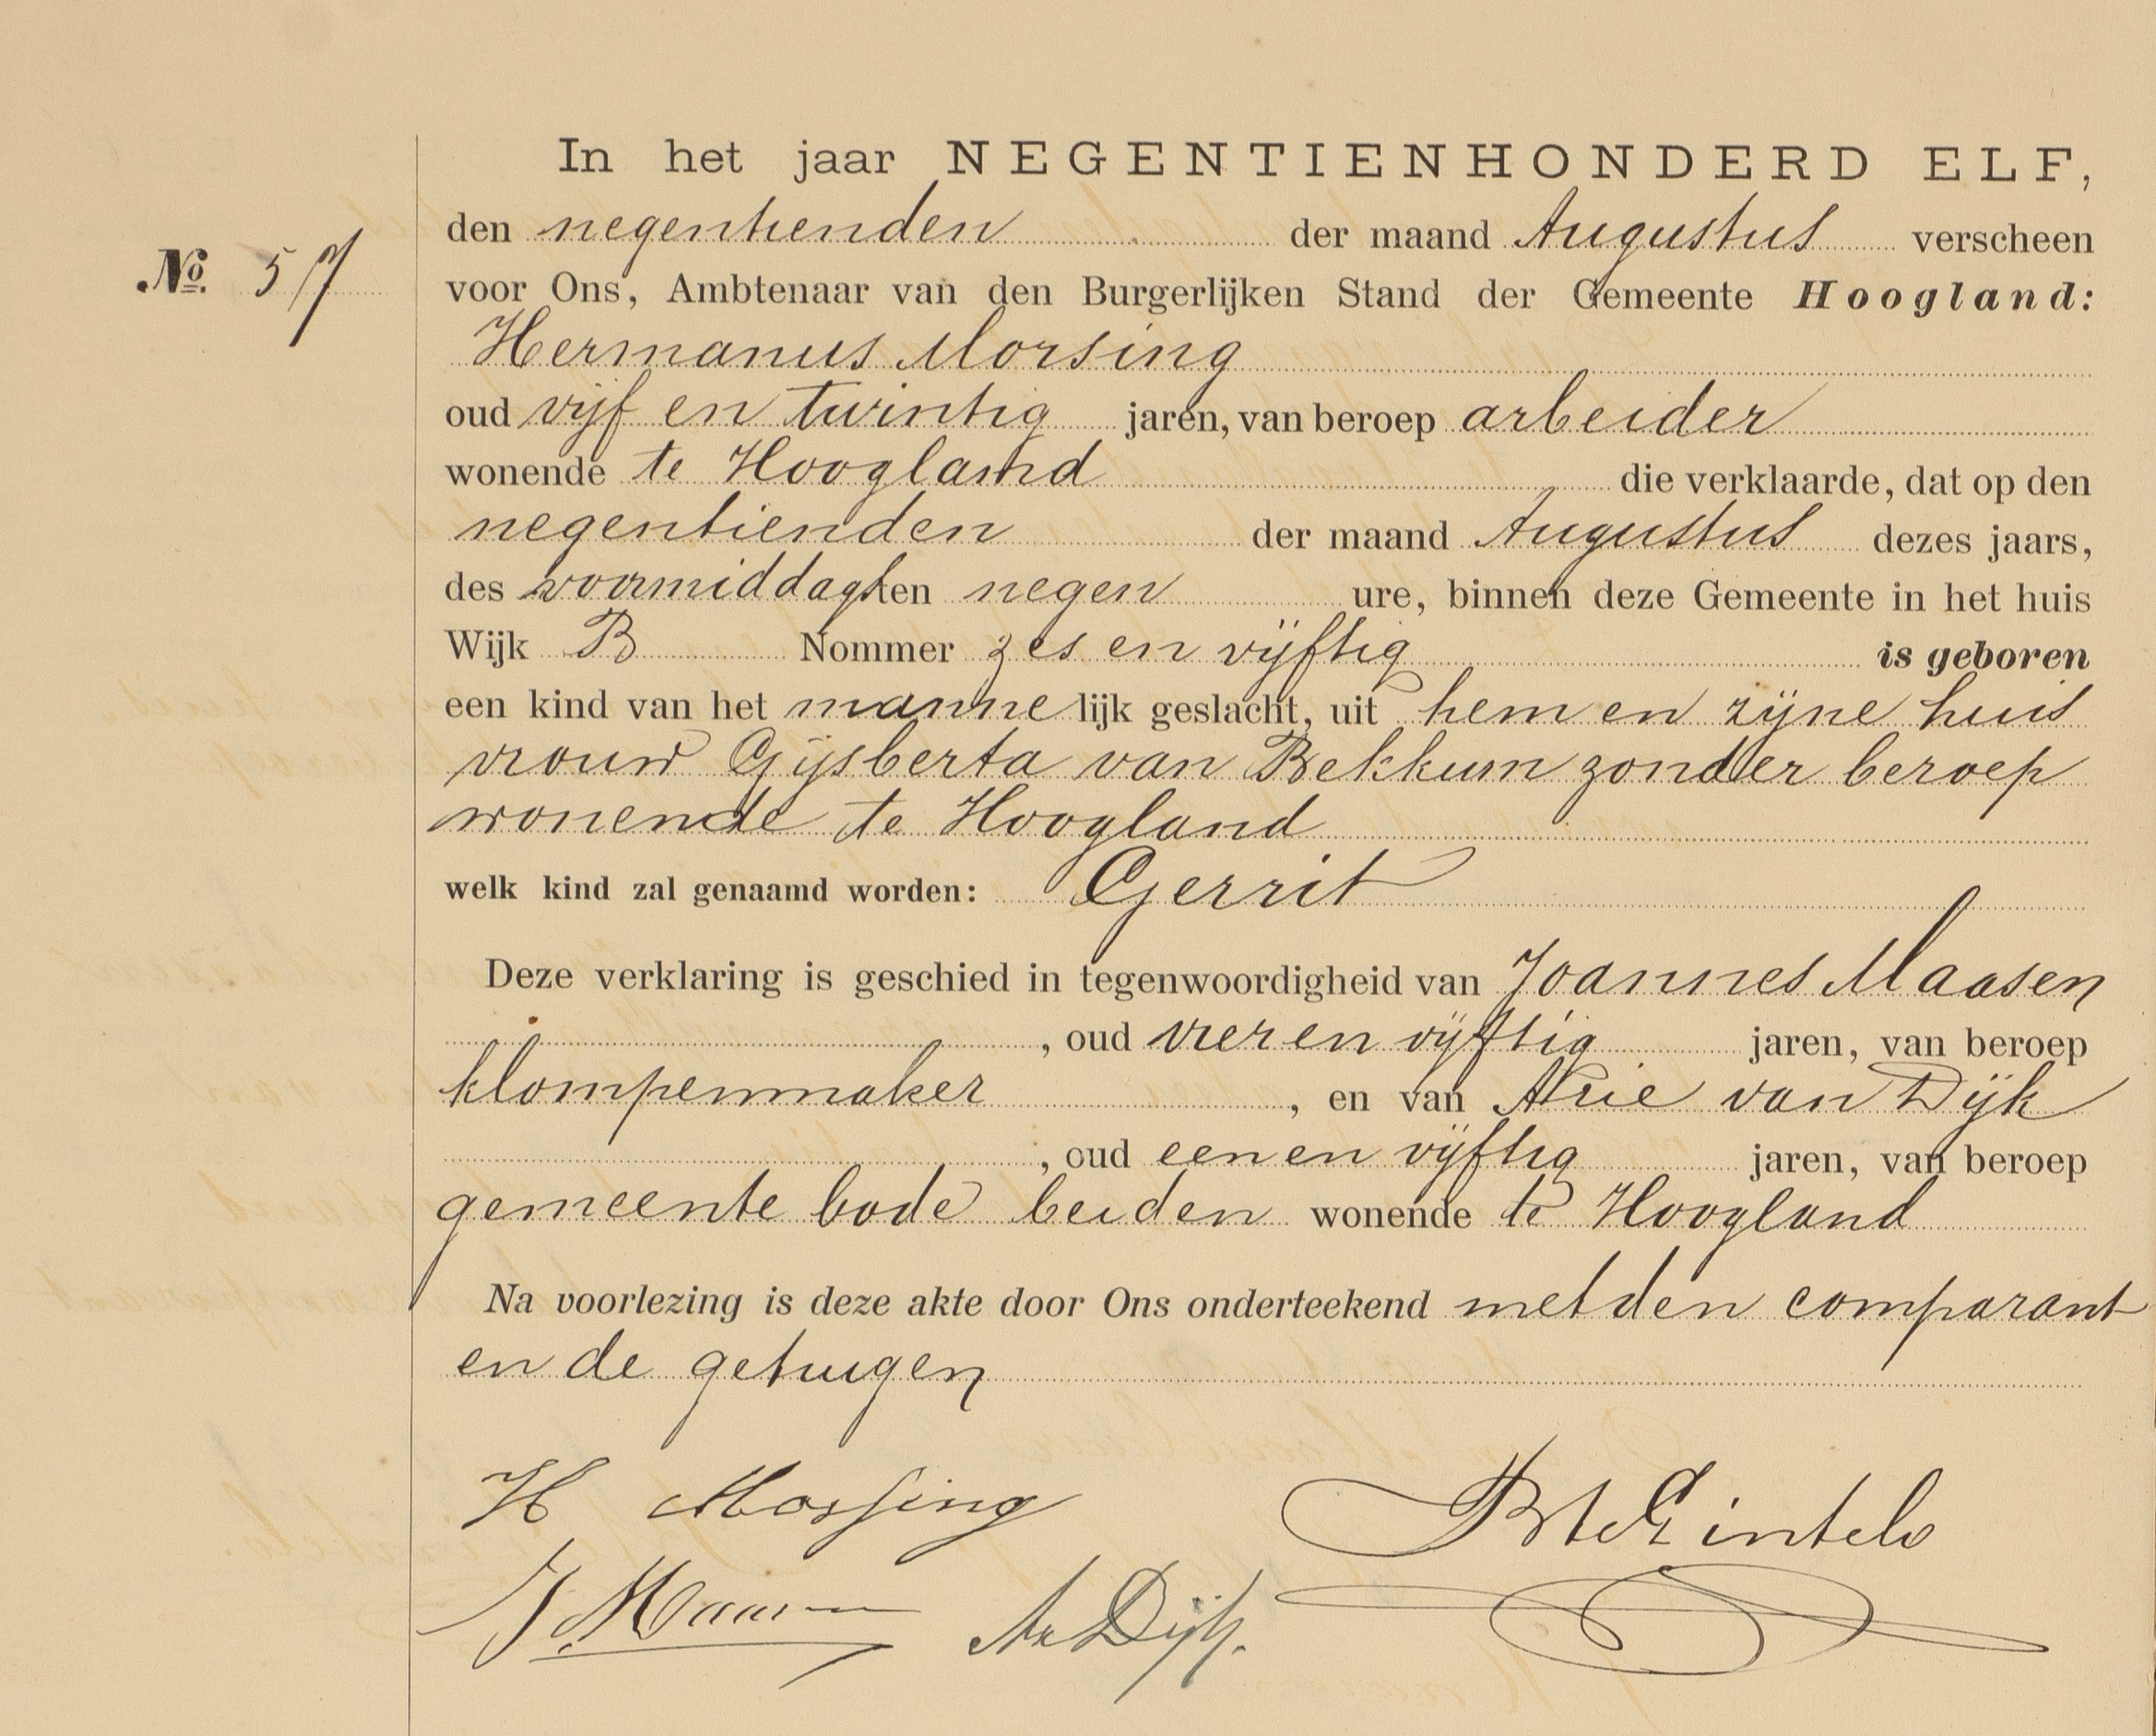 In het jaar NEGENTIENHONDERD ELF,
den negentienden der maand Augustus verscheen
No. 57
voor Ons, Ambtenaar van den Burgerlijken Stand der Gemeente Hoogland:
Hermanus Morsing
oud vijf en twintig jaren, van beroep arbeider
wonende te Hoogland die verklaarde, dat op den
negentienden der maand Augustus dezes jaars,
des voormiddags ten negen ure, binnen deze Gemeente in het huis
Wijk B Nommer zes en vijftig is geboren
een kind van het mannelijk geslacht, uit hem en zijne huis
vrouw Gijsberta van Bekkum zonder beroep
wonende te Hoogland
welk kind zal genaamd worden: Gerrit
Deze verklaring is geschied in tegenwoordigheid van Joannes Maasen
, oud vier en vijftig jaren, van beroep
klompenmaker, en van Arie van Dijk
, oud een en vijftig jaren, van beroep
gemeente bode beiden wonende te Hoogland
Na voorlezing is deze akte door Ons onderteekend met den comparant
en de getuigen
H Morsing
J Maasen